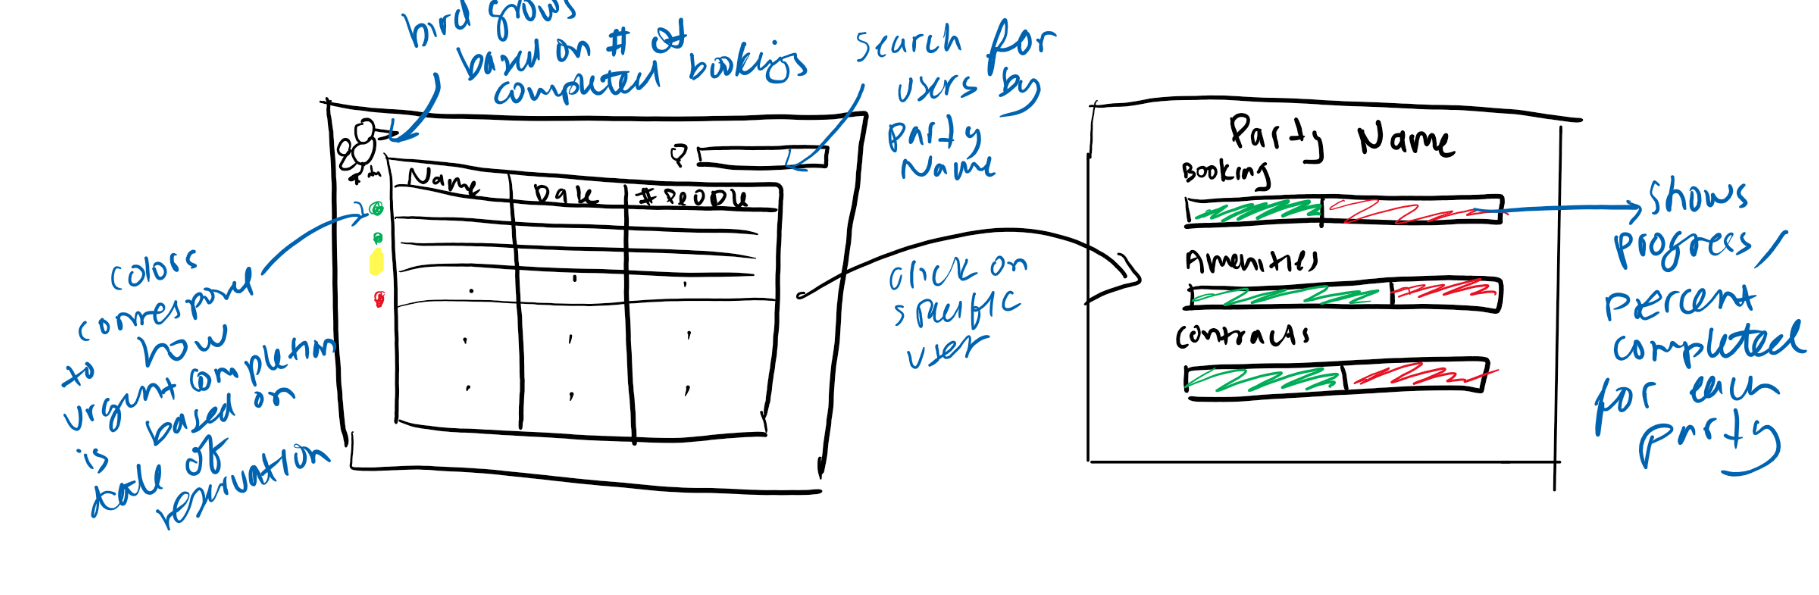 bird grows
based on # of
completed bookings
search for
users by
party
Name
Name
Date
# People
colors
correspond
to how
urgent completion
is based on
date of
reservation
click on
specific
user
Party Name
Booking
Amenities
Contracts
shows
progress/
percent
completed
for each
party